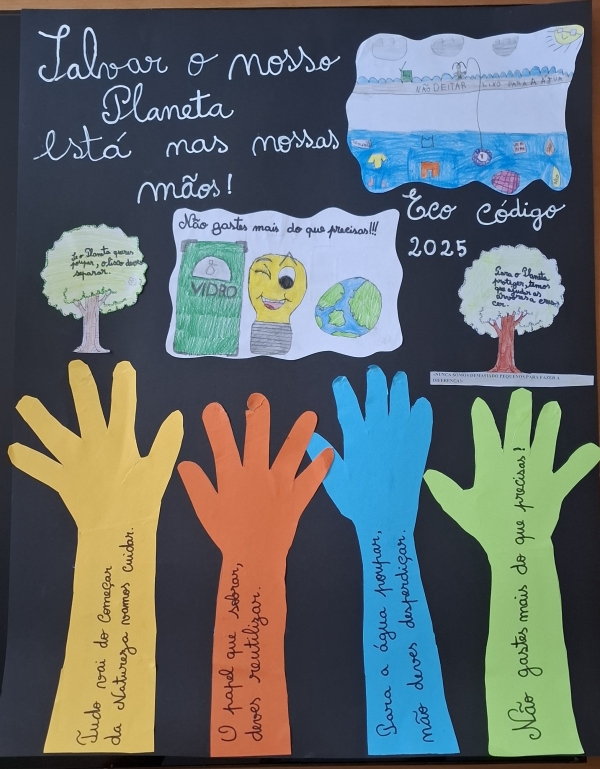 Salvar o nosso
Planeta
está nas nossas
mãos!
NÃO DEITAR LIXO PARA A ÁGUA
Eco Código
2025
Não gastes mais do que precisas!!!
VIDRO
Se o Planeta queres
poupar, o lixo deves
separar.
Para o Planeta
proteger, temos
que ajudar as
árvores a cres-
cer.
«NUNCA SOMOS DEMASIADO PEQUENOS PARA FAZER A
DIFERENÇA»
Tudo vai do Começar
da Natureza vamos cuidar.
O papel que sobrar,
deves reutilizar.
Para a água poupar,
não deves desperdiçar.
Não gastes mais do que precisas!